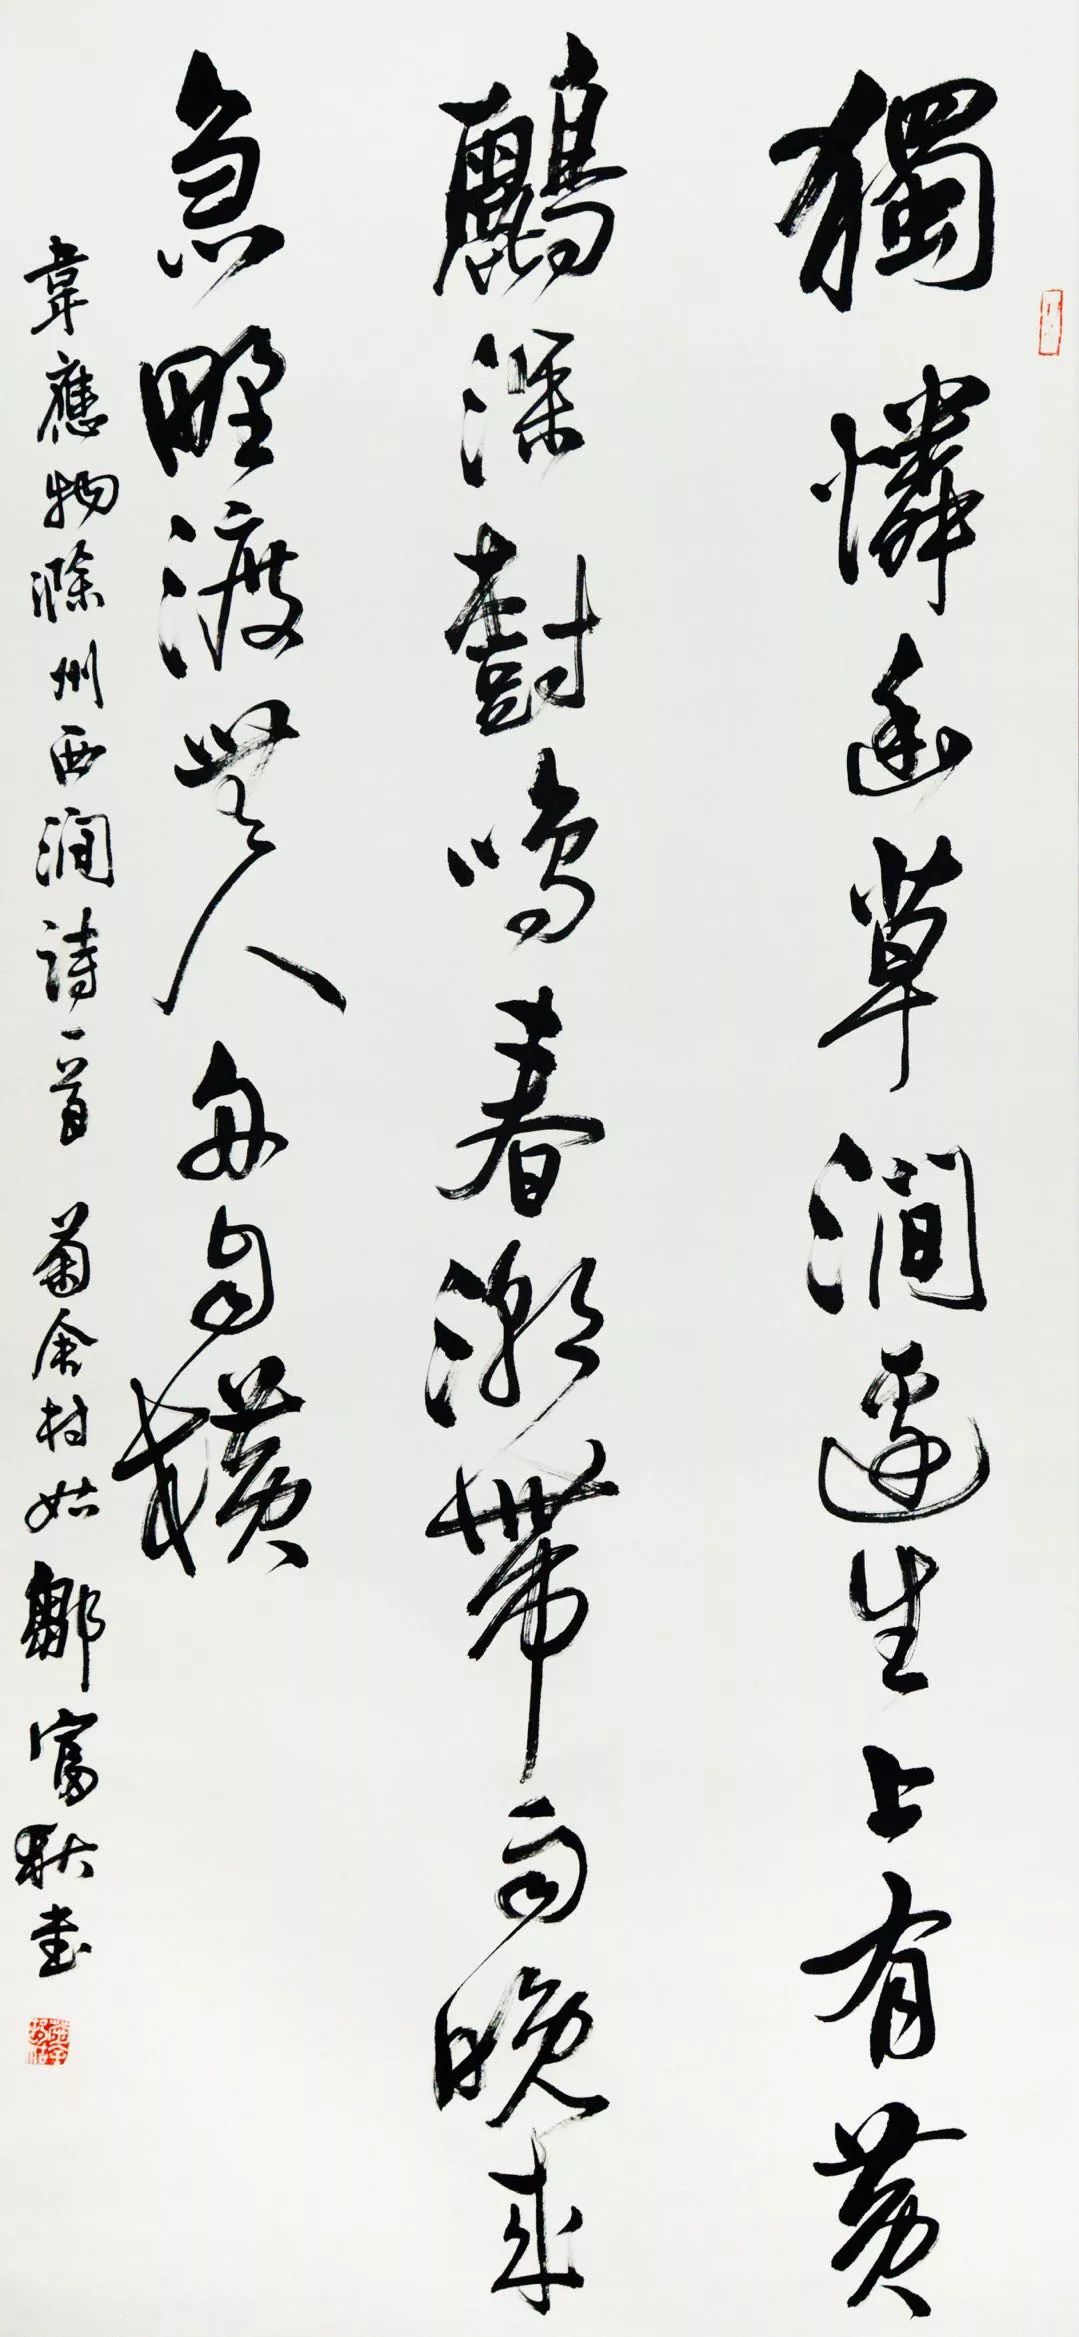 獨憐幽草澗邊生上有黃
鸝深樹鳴春潮帶雨晚來
急野渡無人舟自橫
韋應物滁州西澗詩一首 菊余村姑鄒富耿書